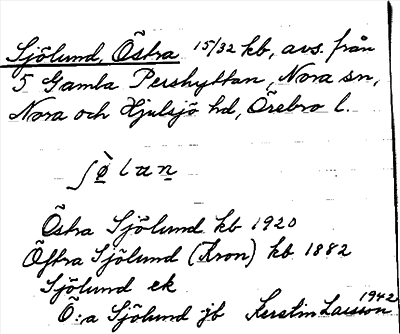 Sjölund, Östra 15/32 kb, avs. från
5 Gamla Pershyttan, Nora sn,
Nora och Hjulsjö hd, Örebro l.
ʃø̀lun
Östra Sjölund kb 1920
Öftra Sjölund (Kron) kb 1882
Sjölund ek
Ö:a Sjölund jb Kerstin Larsson 1942